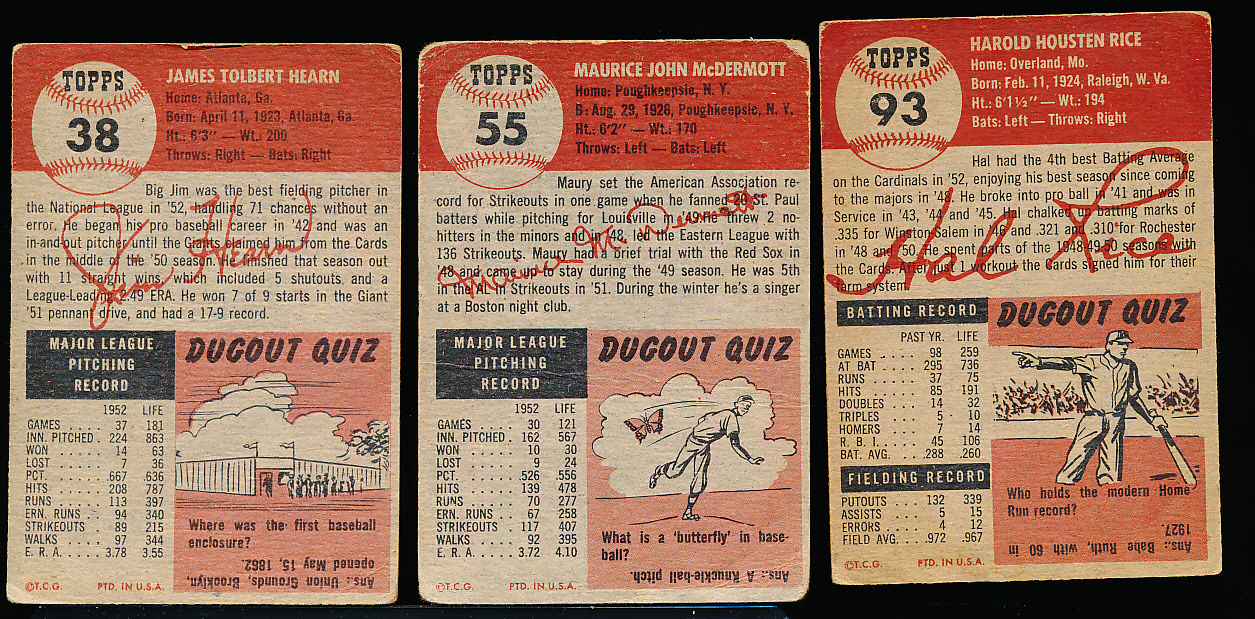 TOPPS
38
JAMES TOLBERT HEARN
Home: Atlanta, Ga.
Born: April 11, 1923, Atlanta, Ga.
Ht.: 6'3" — Wt.: 200
Throws: Right — Bats: Right
Big Jim was the best fielding pitcher in
the National League in '52, handling 71 chances without an
error. He began his pro baseball career in '42 and was an
in-and-out pitcher until the Giants claimed him from the Cards
in the middle of the '50 season. Jim finished that season out
with 11 straight wins which included 5 shutouts, and a
League-Leading 2.49 ERA. He won 7 of 9 starts in the Giant
'51 pennant drive, and had a 17-9 record.
Jim Hearn
MAJOR LEAGUE
PITCHING
RECORD
1952 LIFE
GAMES 37 181
INN. PITCHED . 224 863
WON 14 63
LOST 7 36
PCT. .667 .636
HITS 208 787
RUNS 113 397
ERN. RUNS 94 340
STRIKEOUTS 89 215
WALKS 97 344
E. R. A. 3.78 3.55
DUGOUT QUIZ
Where was the first baseball
enclosure?
Ans.: Union Grounds, Brooklyn,
opened May 15, 1862.
©T.C.G. PTD. IN U.S.A.
TOPPS
55
MAURICE JOHN McDERMOTT
Home: Poughkeepsie, N. Y.
B: Aug. 29, 1928, Poughkeepsie, N. Y.
Ht.: 6'2" — Wt.: 170
Throws: Left — Bats: Left
Maury set the American Association re-
cord for Strikeouts in one game when he fanned 20 St. Paul
batters while pitching for Louisville in '49. He threw 2 no-
hitters in the minors and in '48, led the Eastern League with
136 Strikeouts. Maury had a brief trial with the Red Sox in
'48 and came up to stay during the '49 season. He was 5th
in the AL in Strikeouts in '51. During the winter he's a singer
at a Boston night club.
Maurice McDermott
MAJOR LEAGUE
PITCHING
RECORD
1952 LIFE
GAMES 30 121
INN. PITCHED . 162 567
WON 10 30
LOST 9 24
PCT. .526 .556
HITS 139 478
RUNS 70 277
ERN. RUNS 67 258
STRIKEOUTS 117 407
WALKS 92 395
E. R. A. 3.72 4.10
DUGOUT QUIZ
What is a 'butterfly' in base-
ball?
Ans.: A Knuckle-ball pitch.
©T.C.G. PTD. IN U.S.A.
TOPPS
93
HAROLD HOUSTEN RICE
Home: Overland, Mo.
Born: Feb. 11, 1924, Raleigh, W. Va.
Ht.: 6'1½" — Wt.: 194
Bats: Left — Throws: Right
Hal had the 4th best Batting Average
on the Cardinals in '52, enjoying his best season since coming
to the majors in '48. He broke into pro ball in '41 and was in
Service in '43, '44 and '45. Hal chalked up batting marks of
.335 for Winston-Salem in '46 and .321 and .310 for Rochester
in '48 and '50. He spent parts of the 1948-49-50 seasons with
the Cards. After just 1 workout the Cards signed him for their
farm system.
Hal Rice
BATTING RECORD
PAST YR. LIFE
GAMES 98 259
AT BAT 295 736
RUNS 37 75
HITS 85 191
DOUBLES 14 32
TRIPLES 5 10
HOMERS 7 14
R. B. I. 45 106
BAT. AVG. .288 .260
FIELDING RECORD
PUTOUTS 132 339
ASSISTS 5 15
ERRORS 4 12
FIELD AVG. .972 .967
DUGOUT QUIZ
Who holds the modern Home
Run record?
Ans.: Babe Ruth, with 60 in
1927.
©T.C.G. PTD. IN U.S.A.